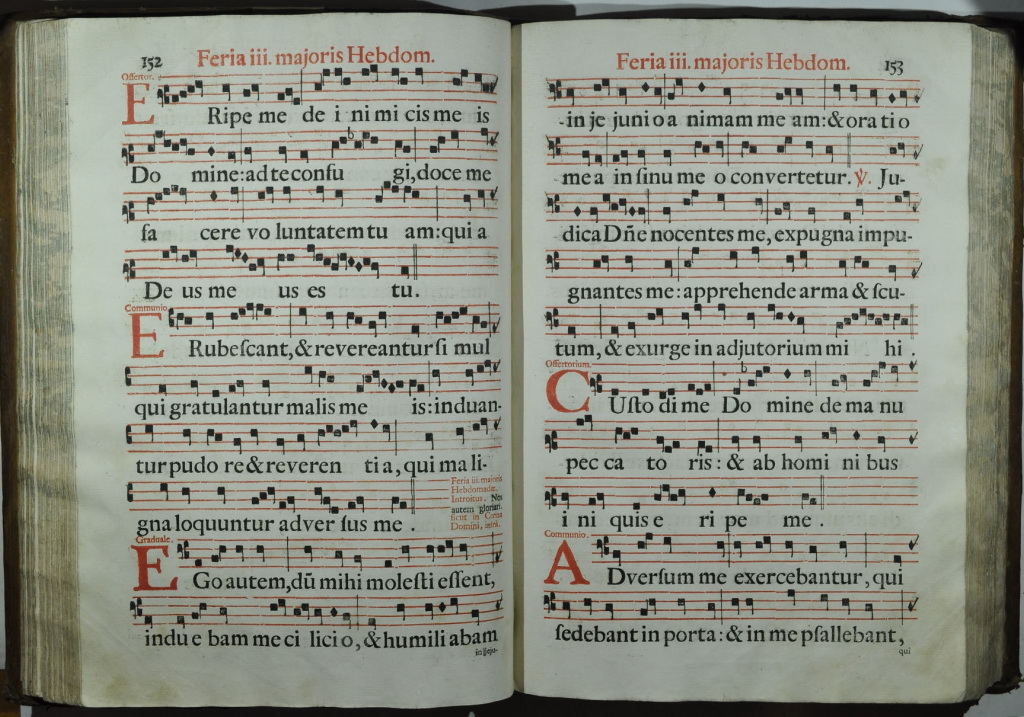 152 Feria iii. majoris Hebdom.
Offertor.
ERipe me de i ni mi cis me is
Do mine: ad te confu gi, doce me
fa cere vo luntatem tu am: qui a
De us me us es tu.
Communio
ERubeſcant, & revereantur ſi mul
qui gratulantur malis me is: induan-
tur pudo re & reveren ti a, qui ma li-
gna loquuntur adver ſus me.
Feria iii. majoris
Hebdomadæ.
Introitus. Nos
autem gloriari.
ſicut in Cœna
Domini,
Graduale.
EGo autem, dū mihi moleſti eſſent,
indu e bam me ci licio, & humili abam
in jeju-
Feria iii. majoris Hebdom. 153
-in je juni o a nimam me am: & ora ti o
me a in ſinu me o convertetur. ℣. Ju-
dica Dñe nocentes me, expugna impu-
gnantes me: apprehende arma & ſcu-
tum, & exurge in adjutorium mi hi.
Offertorium.
CUſto di me Do mine de ma nu
pec ca to ris: & ab homi ni bus
i ni quis e ri pe me.
Communio.
ADverſum me exercebantur, qui
ſedebant in porta: & in me pſallebant,
qui